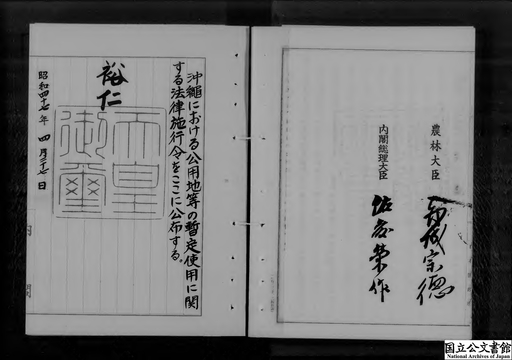 農林大臣
赤城宗徳
内閣総理大臣
佐藤榮作
沖繩における公用地等の暫定使用に関
する法律施行令をここに公布する。
裕仁
天皇
御璽
昭和四十七年 四月二十七日
国立公文書館
National Archives of Japan